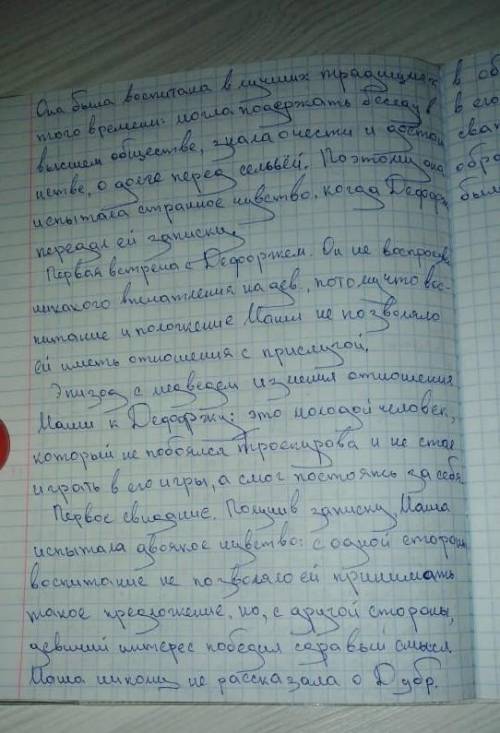 Она была воспитана в лучших традициях
того времени: могла подержать беседу в
высшем обществе, знала о чести и достои
нстве, о долге перед семьёй. Поэтому она
испытала странное чувство, когда Дефорж
передал ей записку.
Первая встреча с Дефоржем. Он не
никакого впечатления на дев., потому что вос-
питание и положение Маши не позволяло
ей иметь отношения с прислугой.
Эпизод с медведем изменил отношения
Маши к Дефоржу: это молодой человек,
который не побоялся Троекурова и не стал
играть в его игры, а смог постоять за себя.
Первое свидание. Получив записку, Маша
испытала двоякое чувство: с одной стороны
воспитание не позволяло ей принимать
такое предложение, но, с другой стороны,
девичий интерес победил здравый смысл.
Маша никому не рассказала о Дубр.
в об
в его
сват
обра
был